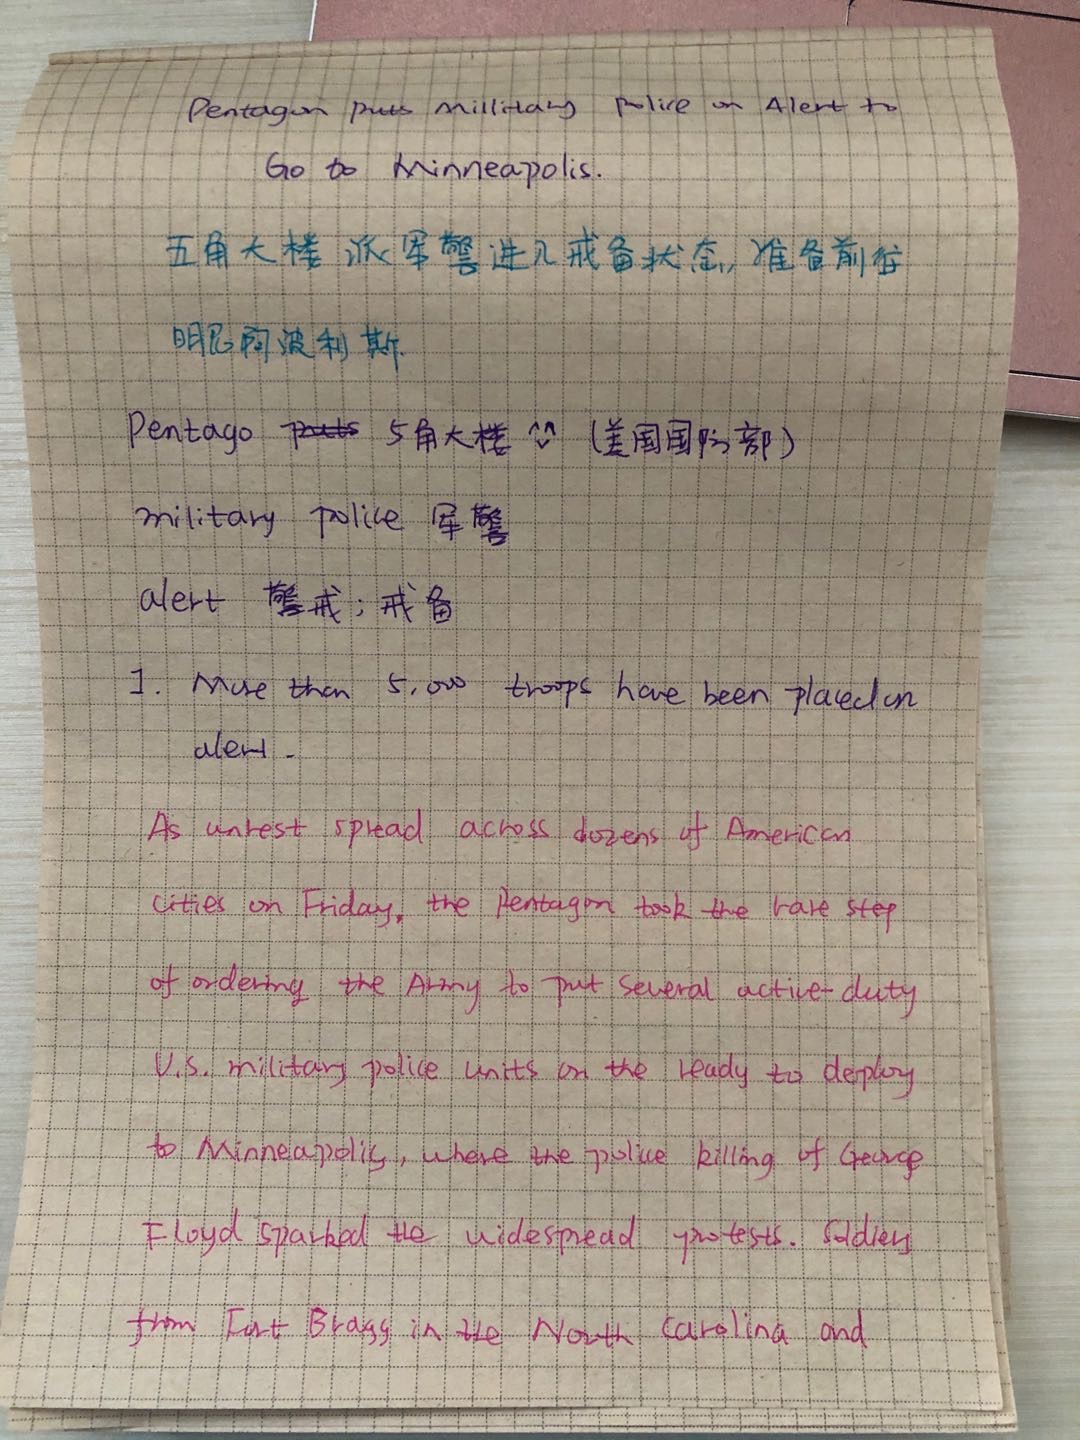 Pentagon puts Millitary police on Alert to
Go to Minneapolis.
五角大楼派军警进入戒备状态,准备前往
明尼阿波利斯.
Pentago puts 5角大楼 (美国国防部)
military police 军警
alert 警戒;戒备
1. More than 5,000 troops have been placed on
alert.
As unrest spread across dozens of American
cities on Friday, the Pentagon took the rare step
of ordering the Army to put several active-duty
U.S. military police units on the ready to deploy
to Minneapolis, where the police killing of George
Floyd sparked the widespread protests. Soldiers
from Fort Bragg in the North Carolina and